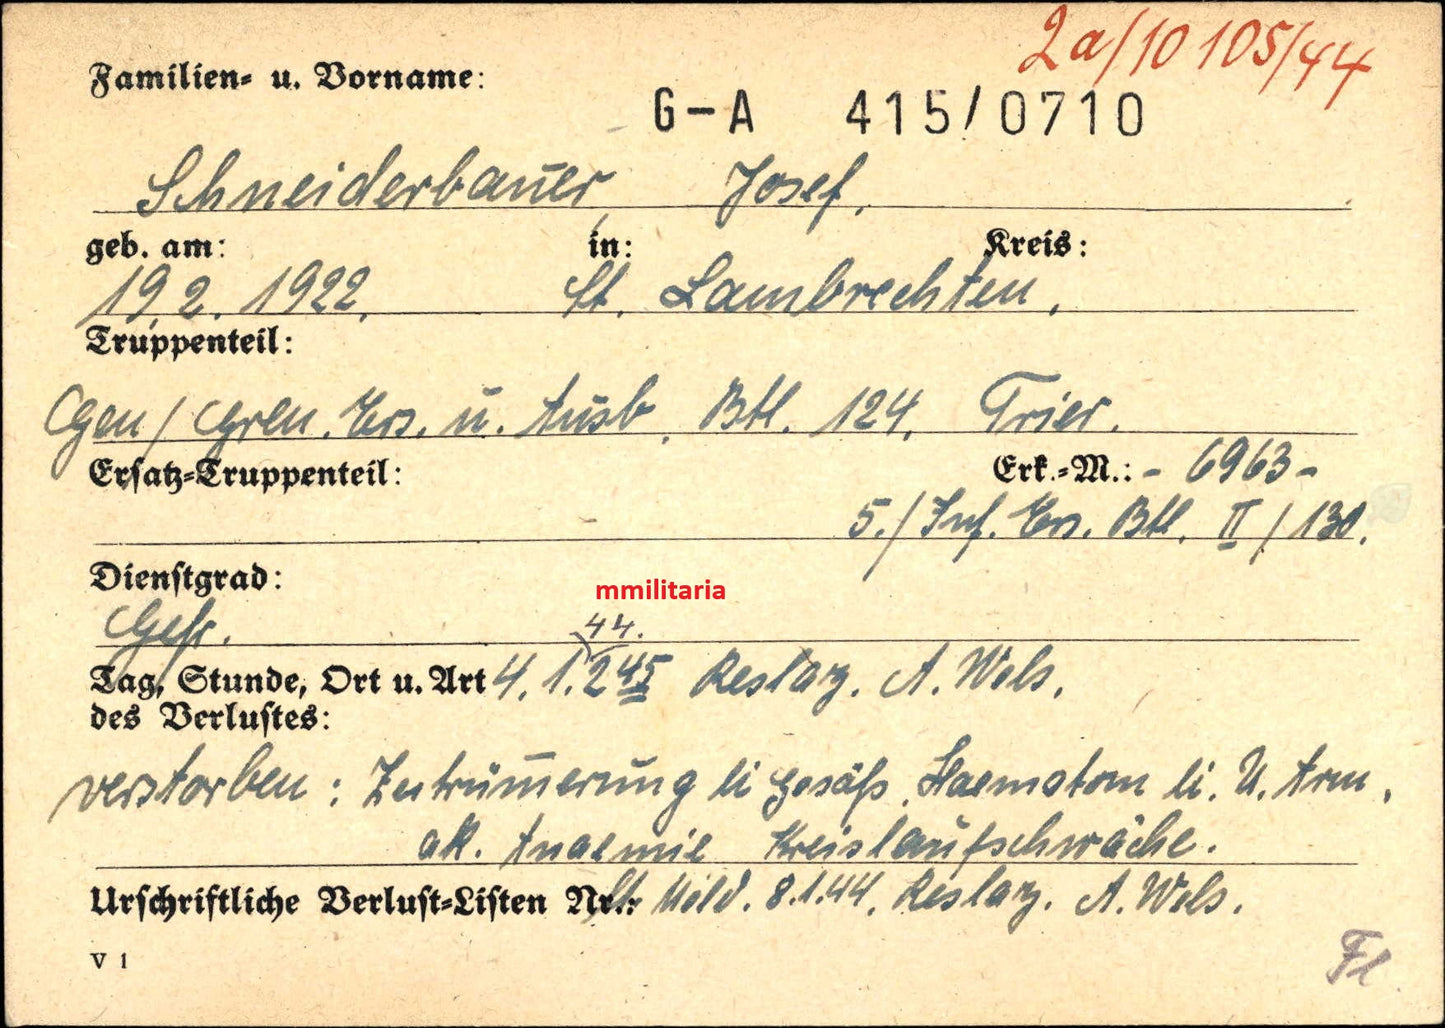 2a/10 105/44
Familien- u. Vorname:
G-A 415/0710
Schneiderbauer, Josef.
geb. am: in: Kreis:
19.2.1922. St. Lambrechten.
Truppenteil:
Gen/Gren. Ers. u. Ausb. Btl. 124. Trier.
Ersatz-Truppenteil: Erk.-M.: - 6963 -
5./Inf. Ers. Btl. II/130.
Dienstgrad:
mmilitaria
Gefr.
44.
Tag, Stunde, Ort u. Art 4.1. 2 45 Reslaz. A. Wels.
des Verlustes:
verstorben: Zertrümerung li Gesäß, Haematom li. U. Arm,
ak. Anaemie Kreislaufschwäche.
Urschriftliche Verlust-Listen Nr.: lt. Meld. 8.1.44. Reslaz. A. Wels.
V 1
Fl